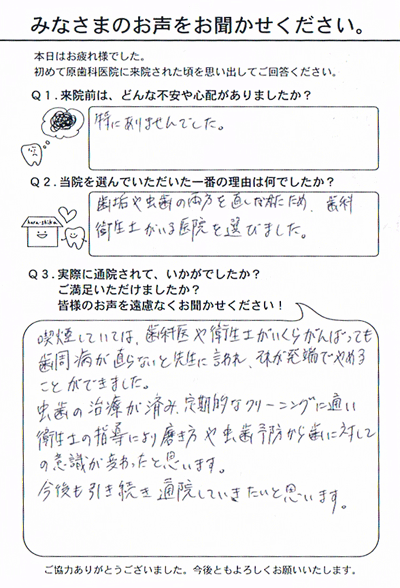 みなさまのお声をお聞かせください。
本日はお疲れ様でした。
初めて原歯科医院に来院された頃を思い出してご回答ください。
Q1.来院前は、どんな不安や心配がありましたか?
特にありませんでした。
Q2.当院を選んでいただいた一番の理由は何でしたか?
歯垢や虫歯の両方を直しなため、歯科
衛生士がいる医院を選びました。
Q3.実際に通院されて、いかがでしたか?
ご満足いただけましたか?
皆様のお声を遠慮なくお聞かせください!
喫煙していては、歯科医や衛生士がいくらがんばっても
歯周病が直らないと先生に言われ、それが発端でやめる
ことができました。
虫歯の治療が済み、定期的なクリーニングに通い
衛生士の指導により磨き方や虫歯予防から歯に対して
の意識が変わったと思います。
今後も引き続き通院していきたいと思います。
ご協力ありがとうございました。今後ともよろしくお願いいたします。